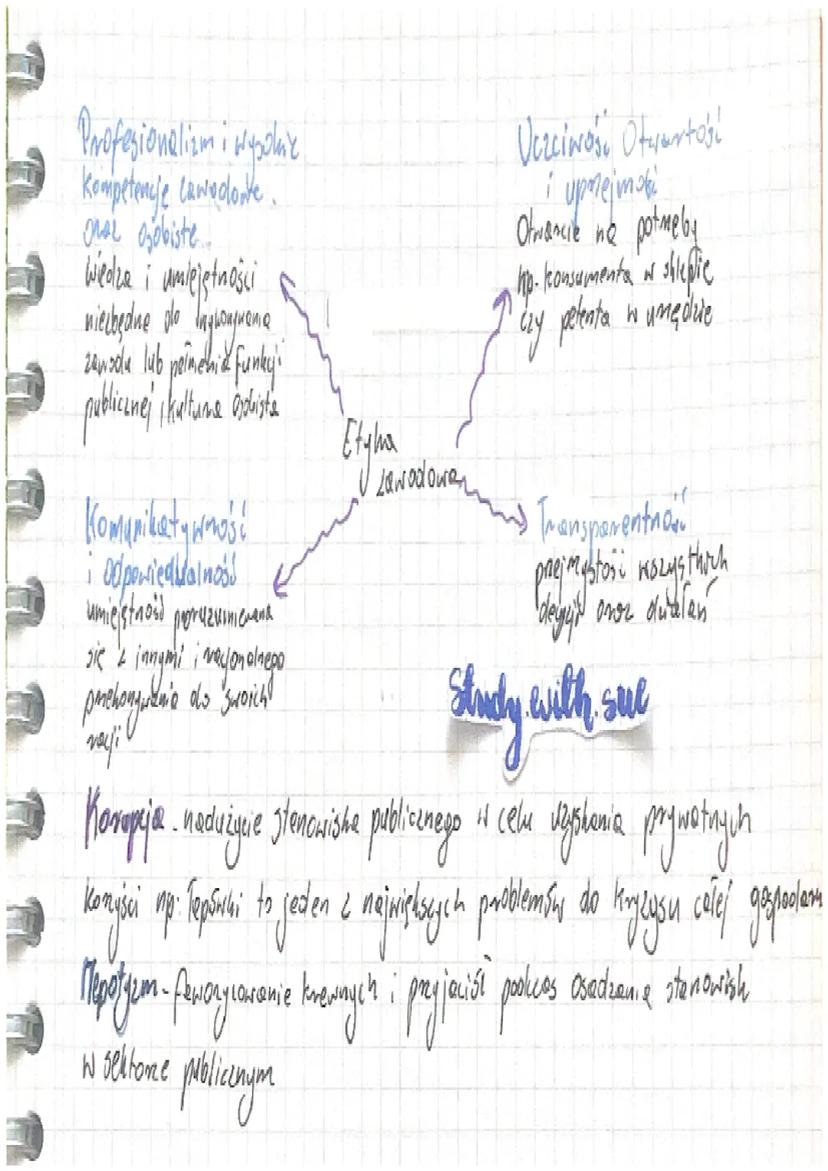 Profesjonalizm i wysokie
kompetencje zawodowe
oraz osobiste
Wiedza i umiejętności
niezbędne do wykonywania
zawodu lub pełnienia funkcji
publicznej, kultura osobista
Uczciwość Otwartość
i uprzejmość
Otwarcie na potrzeby
np. konsumenta w sklepie
czy petenta w urzędzie
Etyka
zawodowa
Komunikatywność
i odpowiedzialność
umiejętność porozumiewania
się z innymi i racjonalnego
przekonywania do swoich
racji
Transparentność
przejrzystość wszystkich
decyzji oraz działań
Study.with.sue
Korupcja - nadużycie stanowiska publicznego w celu uzyskania prywatnych
korzyści np: łapówki to jeden z największych problemów do kryzysu całej
Nepotyzm - faworyzowanie krewnych i przyjaciół podczas osadzania stanowisk
w sektorze publicznym